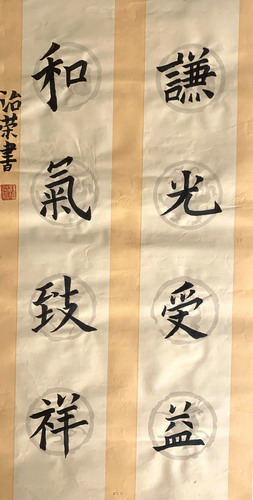 謙光受益
和氣致祥
治榮書